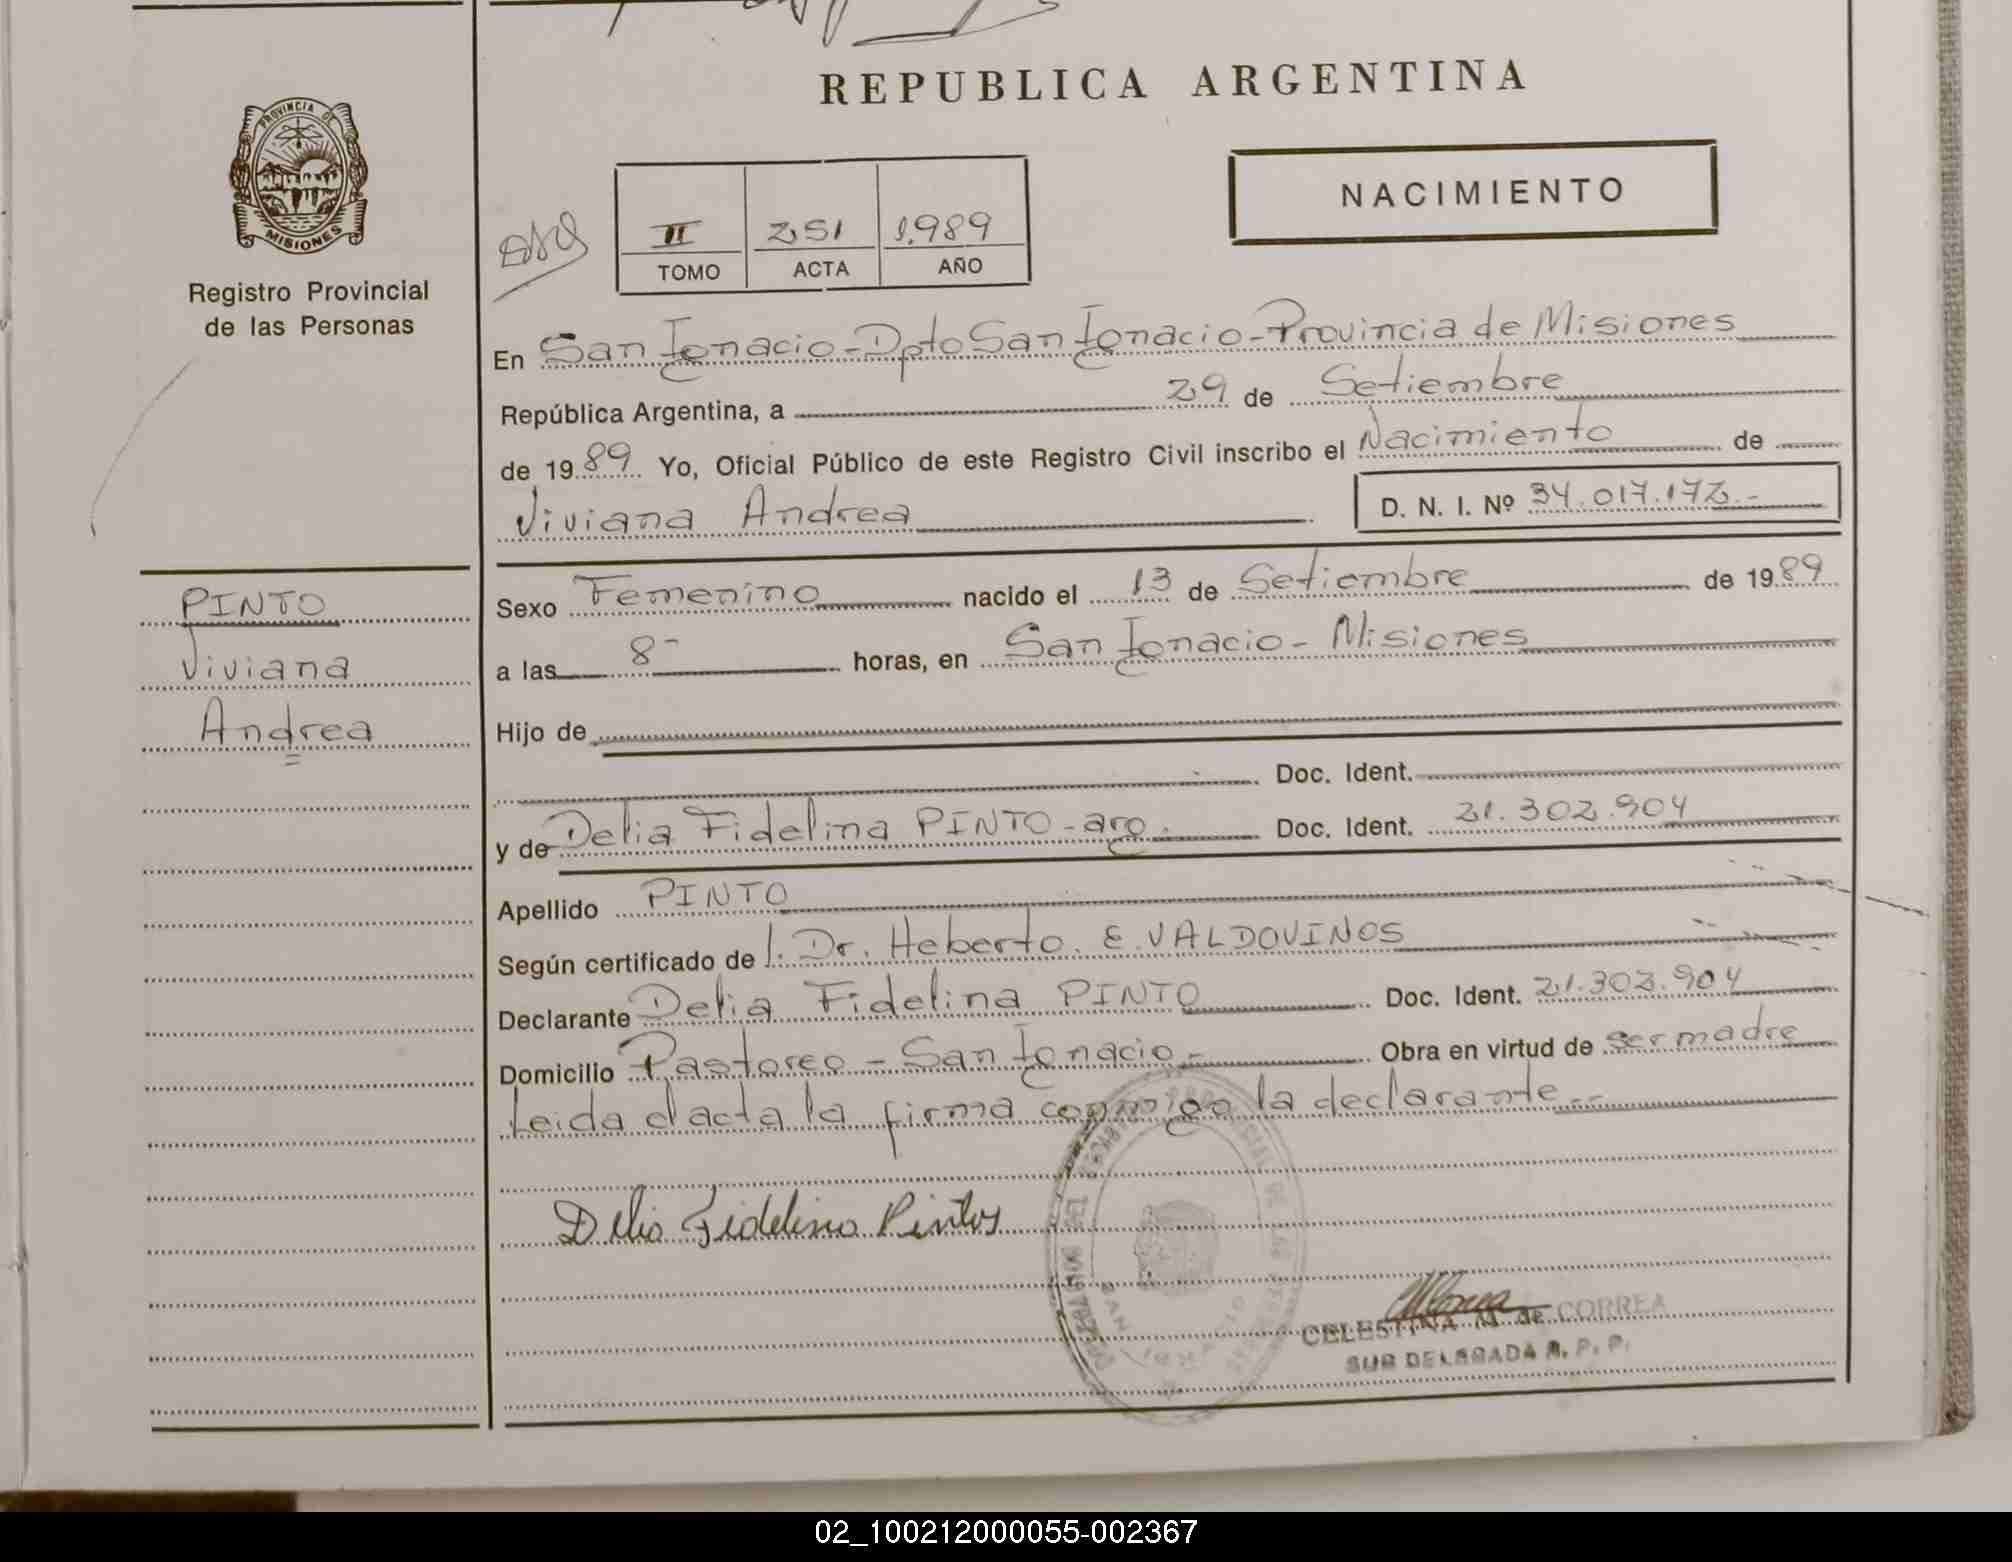 REPUBLICA ARGENTINA
PROVINCIA DE
MISIONES
Registro Provincial
de las Personas
NACIMIENTO
II 251 1.989
TOMO ACTA AÑO
En San Ignacio - Dpto San Ignacio - Provincia de Misiones
República Argentina, a 29 de Setiembre
de 1989 Yo, Oficial Público de este Registro Civil inscribo el Nacimiento de
Viviana Andrea D. N. I. Nº 34.017.172.-
PINTO
Viviana
Andrea
Sexo Femenino nacido el 13 de Setiembre de 1989
a las 8- horas, en San Ignacio - Misiones
Hijo de
Doc. Ident.
y de Delia Fidelina PINTO - arg. Doc. Ident. 21.302.904
Apellido PINTO
Según certificado de l. Dr. Heberto. E. VALDOVINOS
Declarante Delia Fidelina PINTO Doc. Ident. 21.302.904
Domicilio Pastoreo - San Ignacio - Obra en virtud de ser madre
Leida el acta la firma conmigo la declarante.--
Delia Fidelina Pintos
CELESTINA M. de CORREA
SUB DELEGADA R. P. P.
02_100212000055-002367